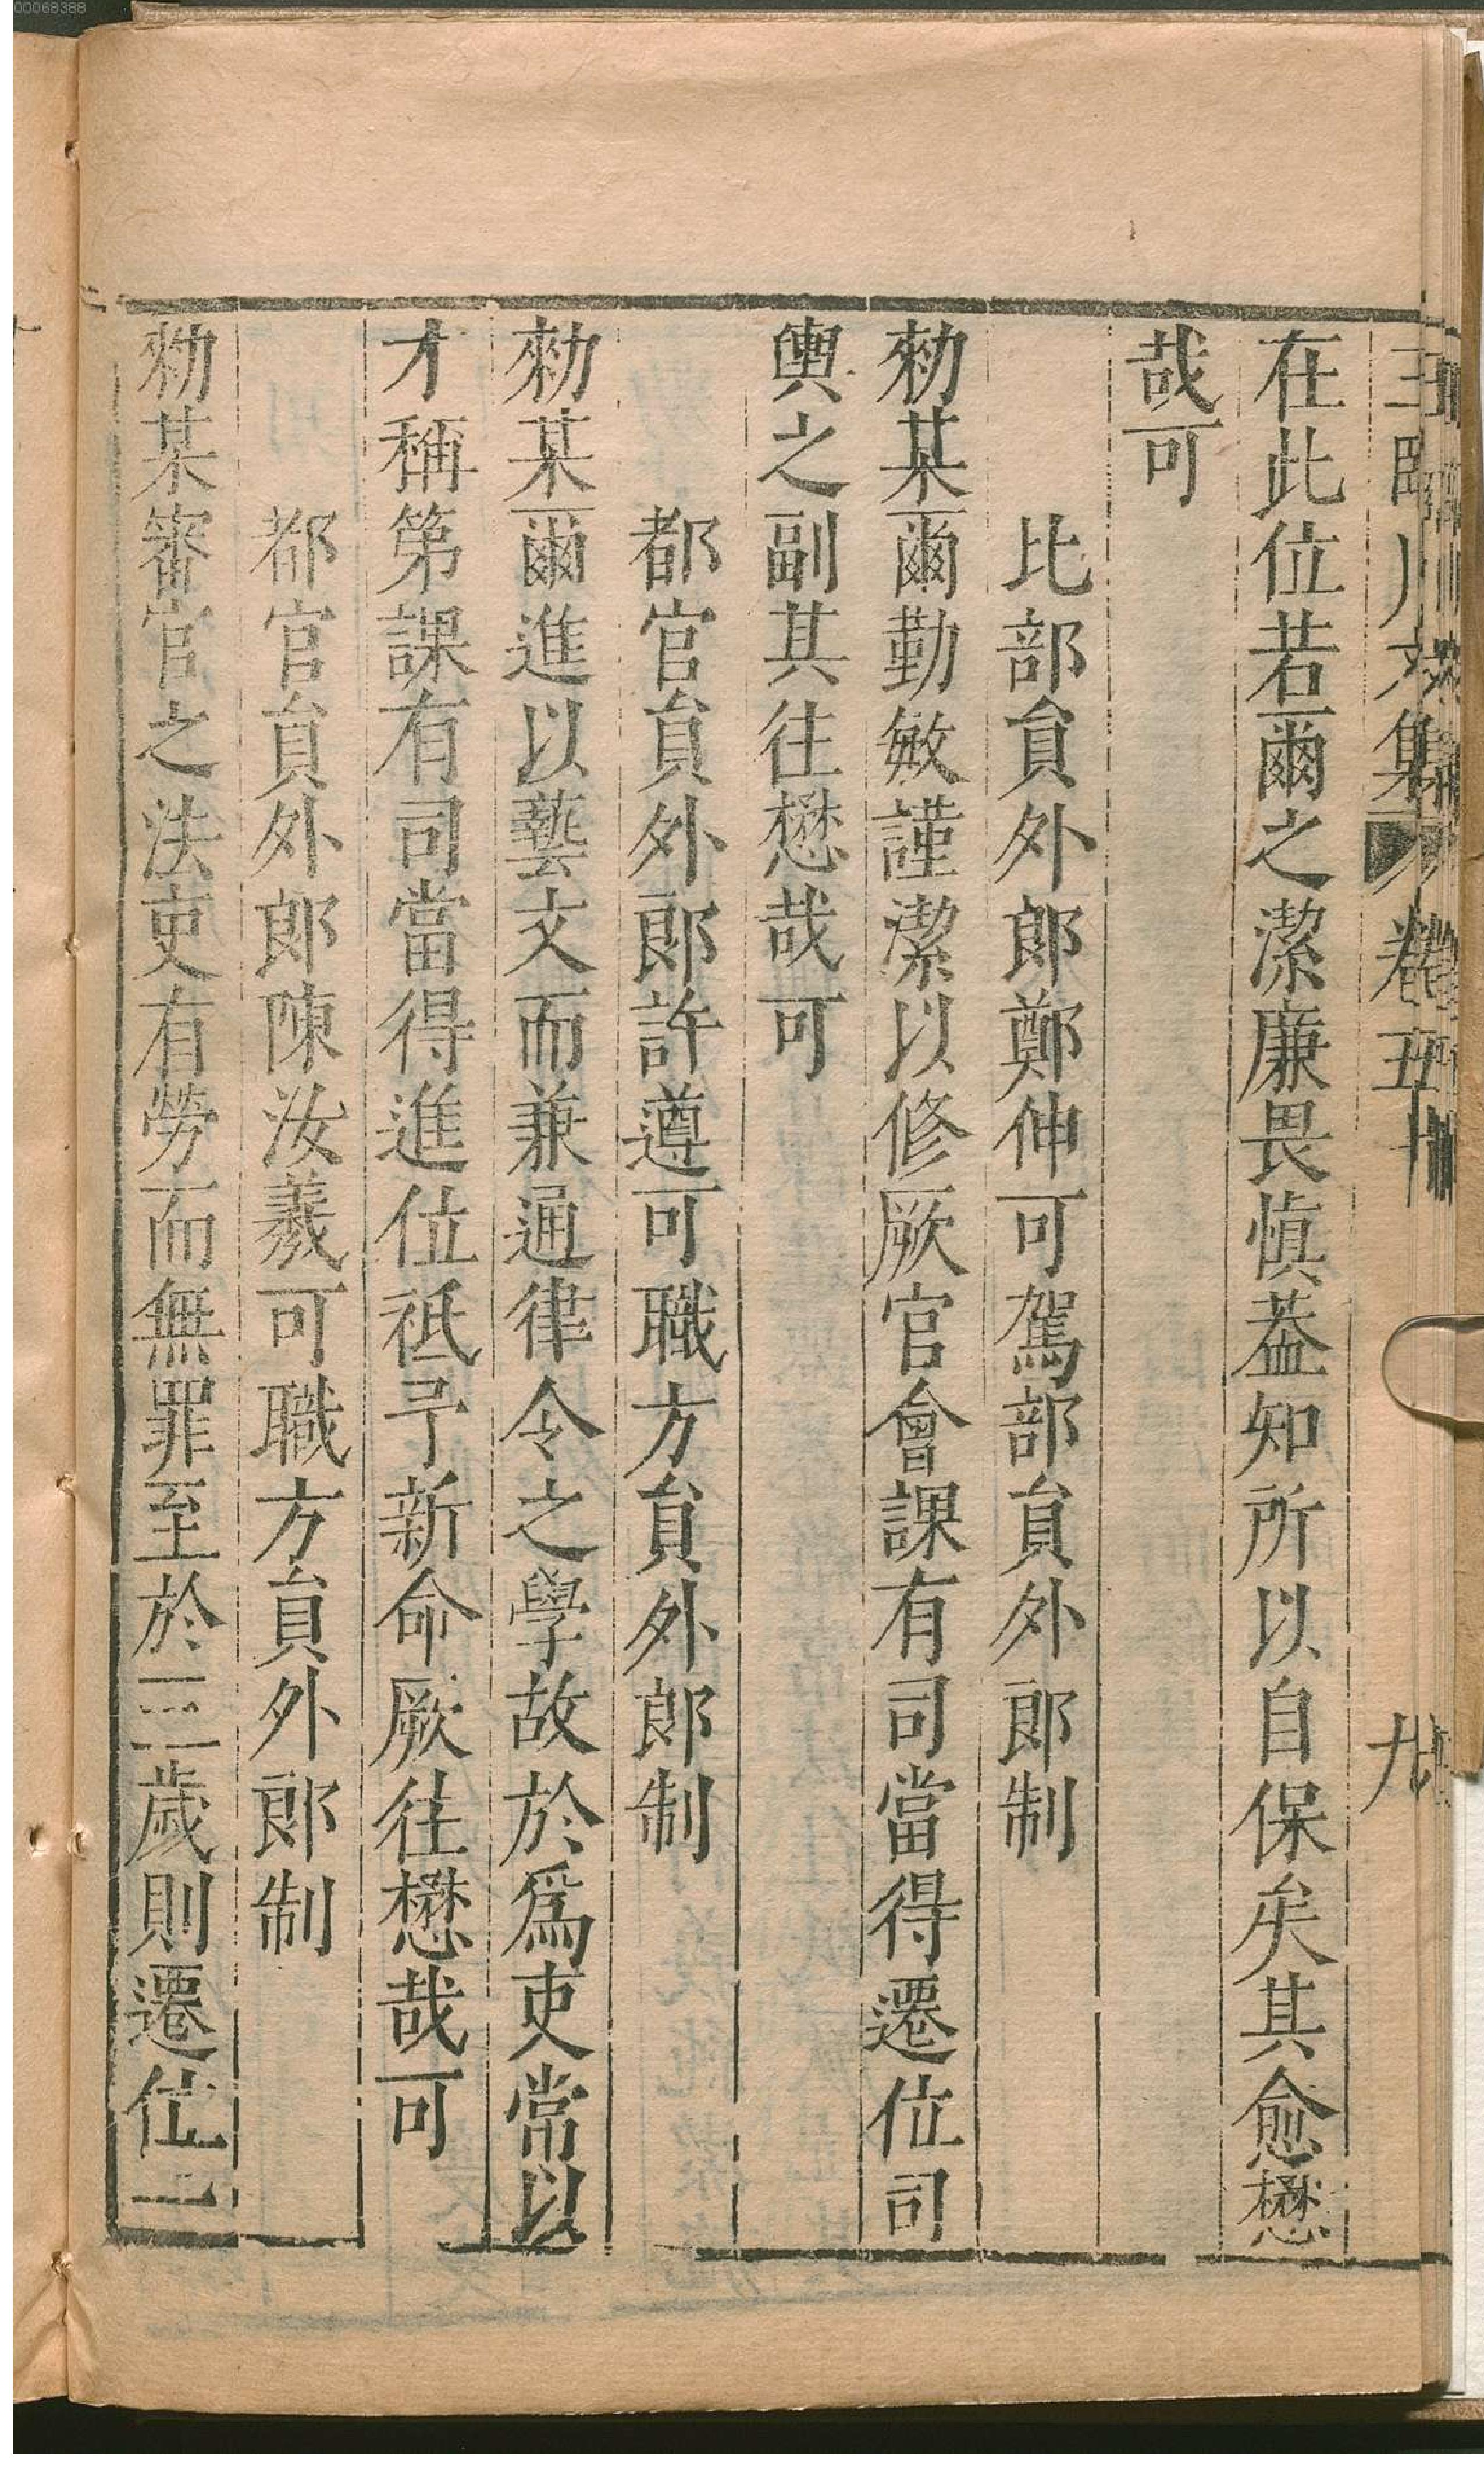 00068388
王臨川文集 卷五十 九
在此位若爾之潔廉畏慎葢知所以自保矣其愈懋
哉可
比部員外郎鄭伸可駕部員外郎制
勑某爾勤敏謹潔以修厥官會課有司當得遷位司
輿之副其往懋哉可
都官員外郎許遵可職方員外郎制
勑某爾進以藝文而兼通律令之學故於爲吏常以
才稱第課有司當得進位祗予新命厥往懋哉可
都官員外郎陳汝羲可職方員外郎制
勑某審官之法吏有勞而無罪至於三歲則遷位一